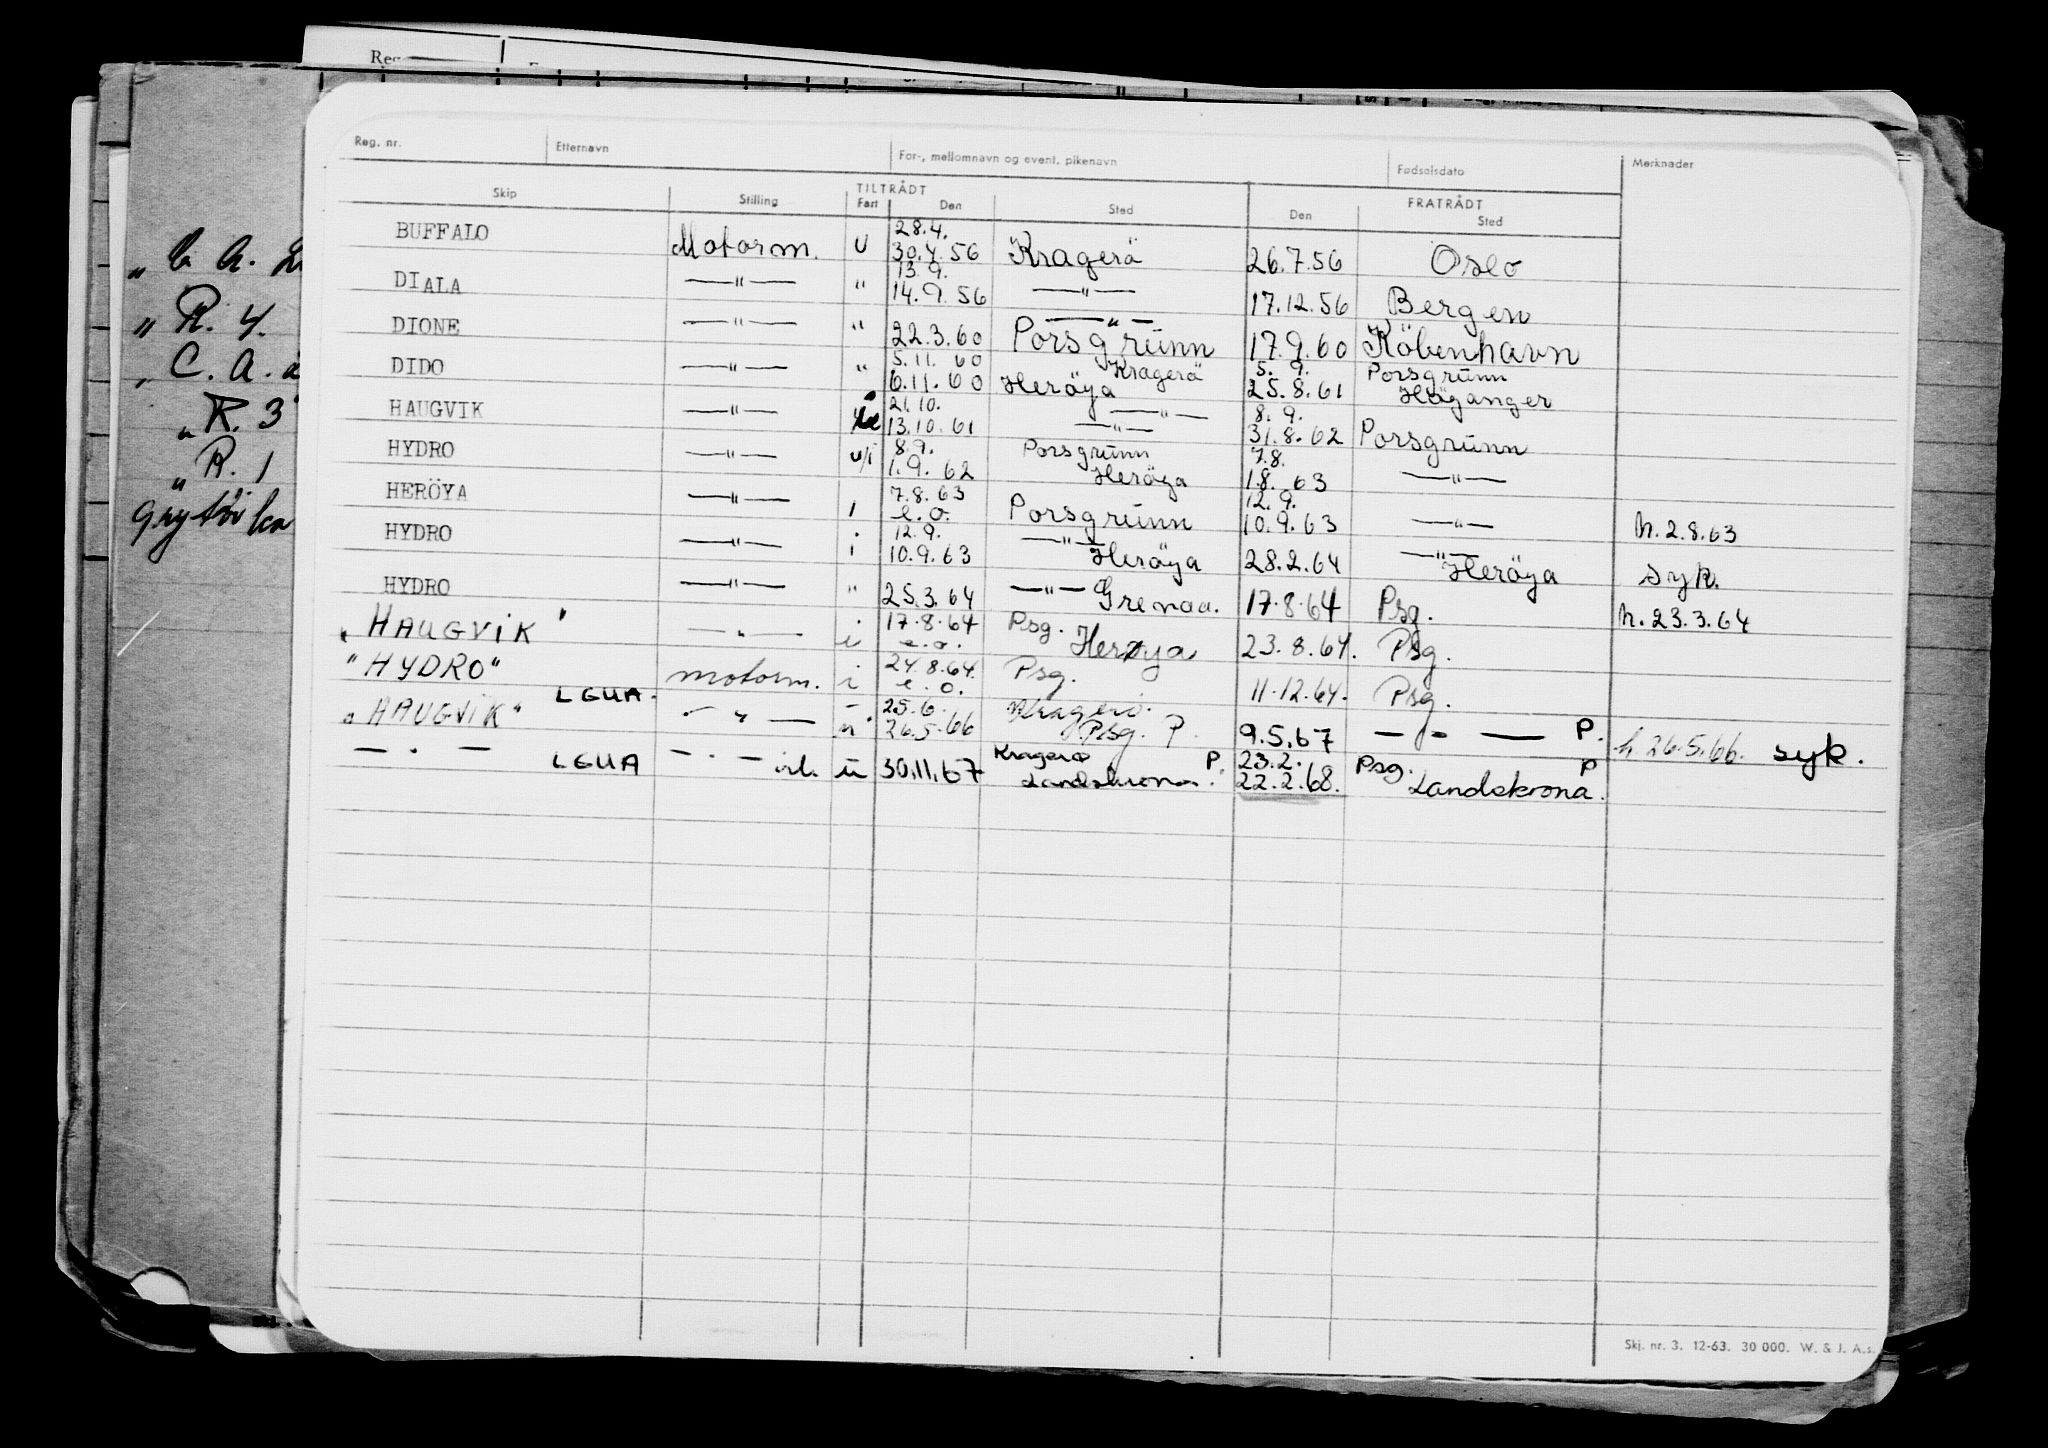 Reg. nr. Etternavn For-, mellomnavn og event. pikenavn Fødselsdato Merknader
Skip Stilling TILTRÅDT FRATRÅDT
Fart Den Sted Den Sted
BUFFALO Motorm. U 28.4. 30.4.56 Kragerö 26.7.56 Oslo
DIALA —"— " 13.9. 14.9.56 —"— 17.12.56 Bergen
DIONE —"— " 22.3.60 —"— Porsgrunn 17.9.60 Köbenhavn
DIDO —"— " 5.11.60 6.11.60 Kragerä Heröya 5.9. 25.8.61 Porsgrunn Höganger
HAUGVIK —"— 21.10. 13.10.61 —"— —"— 8.9. 31.8.62 Porsgrunn
HYDRO —"— u/i 8.9. 1.9.62 Porsgrunn Heröya 7.8. 1.8.63 —"—
HERÖYA —"— i 7.8.63 e.o. Porsgrunn 12.9. 10.9.63 —"— h.2.8.63
HYDRO —"— i 12.9. 10.9.63 —"— Heröya 28.2.64 —"— Heröya syk.
HYDRO —"— " 25.3.64 —"— Grenaa. 17.8.64 Psg. h.23.3.64
"HAUGVIK" —"— i 17.8.64 e.o. Psg. Herøya 23.8.64. Psg.
"HYDRO" motorm. i 24.8.64. e.o. Psg. 11.12.64. Psg.
"HAUGVIK" LGUA. —"— 25.6. 26.5.66 Kragerö. Psg. P. 9.5.67 —"— P. h 26.5.66. syk.
— . — LGUA — . — u 30.11.67 Kragerø P. Landskrona. 23.2. 22.2.68. Psg. P Landskrona.
Skj. nr. 3. 12-63. 30 000. W. & J. A.s.
Reg
" R. 4.
C. A.
" R. 3
" R. 1